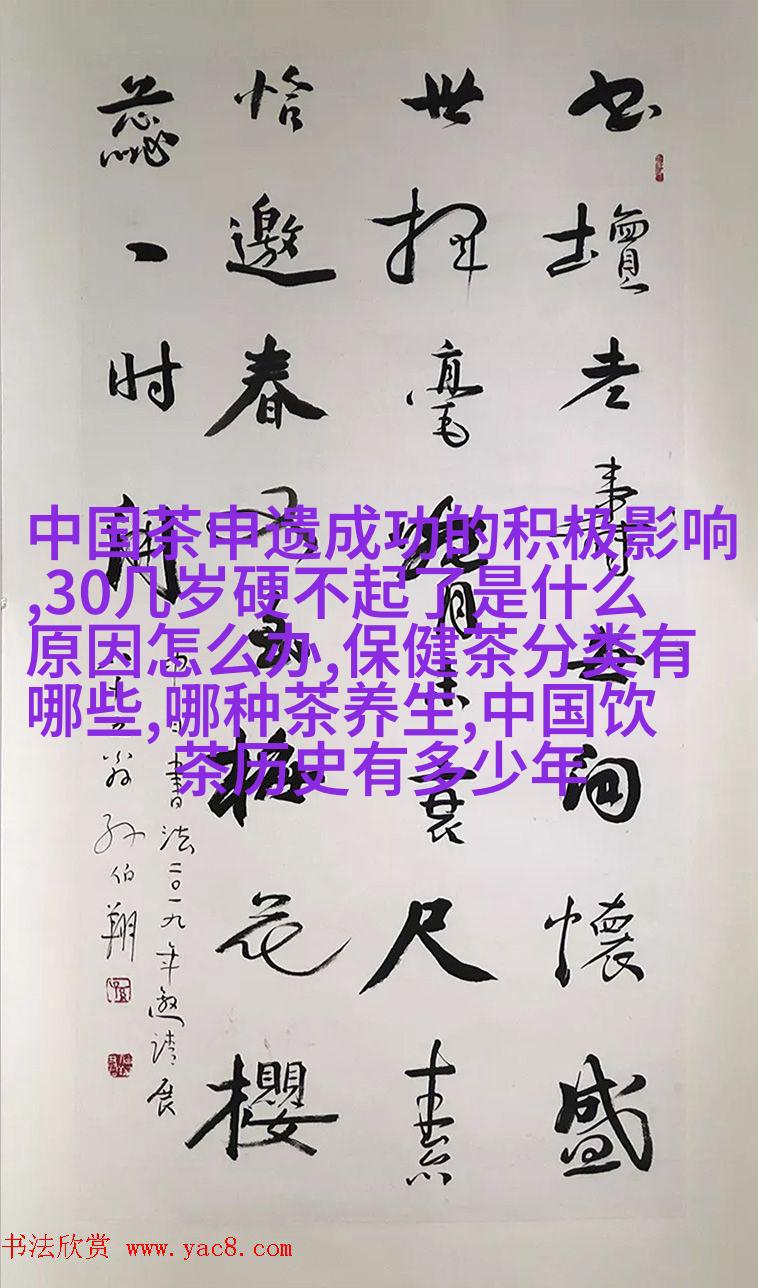 书壇老间懷盛
世揮毫尺素
恰邀春梅花櫻
蕊一时
书法二〇一九年邀请展
翁孙伯翔
中国茶申遗成功的积极影响
,30几岁硬不起了是什么
原因怎么办,保健茶分类有
哪些,哪种茶养生,中国饮
茶历史有多少年
书法欣赏 www.yac8.com